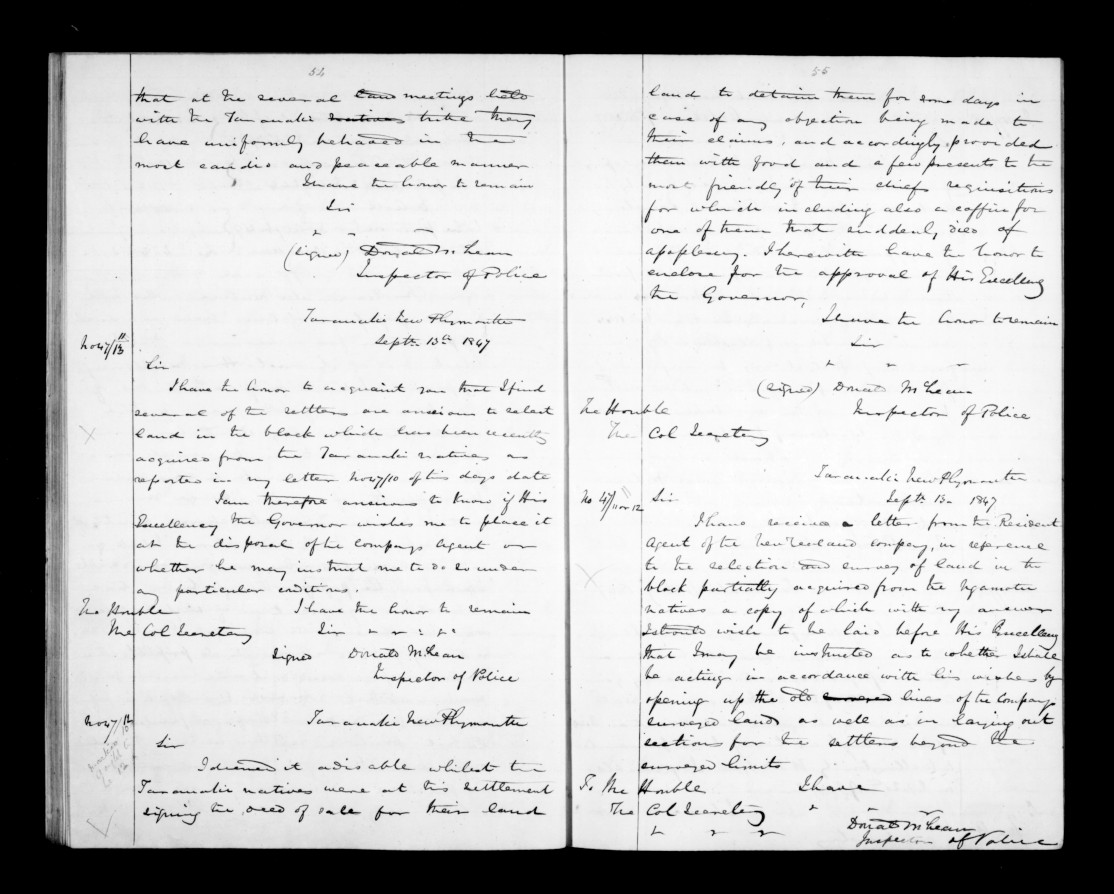 54
that at the several land meetings held
with the Taranaki natives tribe they
have uniformly behaved in the
most candid and peaceable manner
I have the honor to remain
Sir
(signed) Donald McLean
Inspector of Police
Taranaki New Plymouth
Septr. 13th 1847
No 47/11
13
Sir
I have the honor to acquaint you that I find
several of the settlers are anxious to select
land in the block which has been recently
acquired from the Taranaki natives as
reported in my letter No 47/10 of this days date
I am therefore anxious to know if His
Excellency the Governor wishes me to place it
at the disposal of the Companys Agent or
whether he may instruct me to do so under
any particular conditions.
The Honble
I have the honor to remain
The Col Secretary
Sir " " " "
Signed Donald McLean
Inspector of Police
No 47/12
13
Taranaki New Plymouth
Sir
I deemed it advisable whilst the
Taranaki natives were at this settlement
signing the deed of sale for their land
55
land to detain them for some days in
case of any objection being made to
their claims, and accordingly, provided
them with food and a few presents to the
most friendly of their chiefs requisitions
for which including also a coffin for
one of them that suddenly died of
apoplexy. I herewith have the honor to
enclose for the approval of His Excellency
the Governor,
I have the honor to remain
Sir
" " "
(signed) Donald McLean
The Honble
Inspector of Police
The Col Secretary
Taranaki New Plymouth
No 47/11 or 12
Sir
Septr 13th 1847
I have received a letter from the Resident
Agent of the New Zealand Company, in reference
to the selection and survey of land in the
block partially acquired from the Ngamotu
natives a copy of which with my answer
I should wish to be laid before His Excellency
that I may be instructed as to whether I shall
be acting in accordance with his wishes by
opening up the old surveyed lines of the Companys
surveyed lands as well as in laying out
sections for the settlers beyond the
surveyed limits
To The Honble
I have
The Col Secretary
" " "
" " "
Donald McLean
Inspector of Police